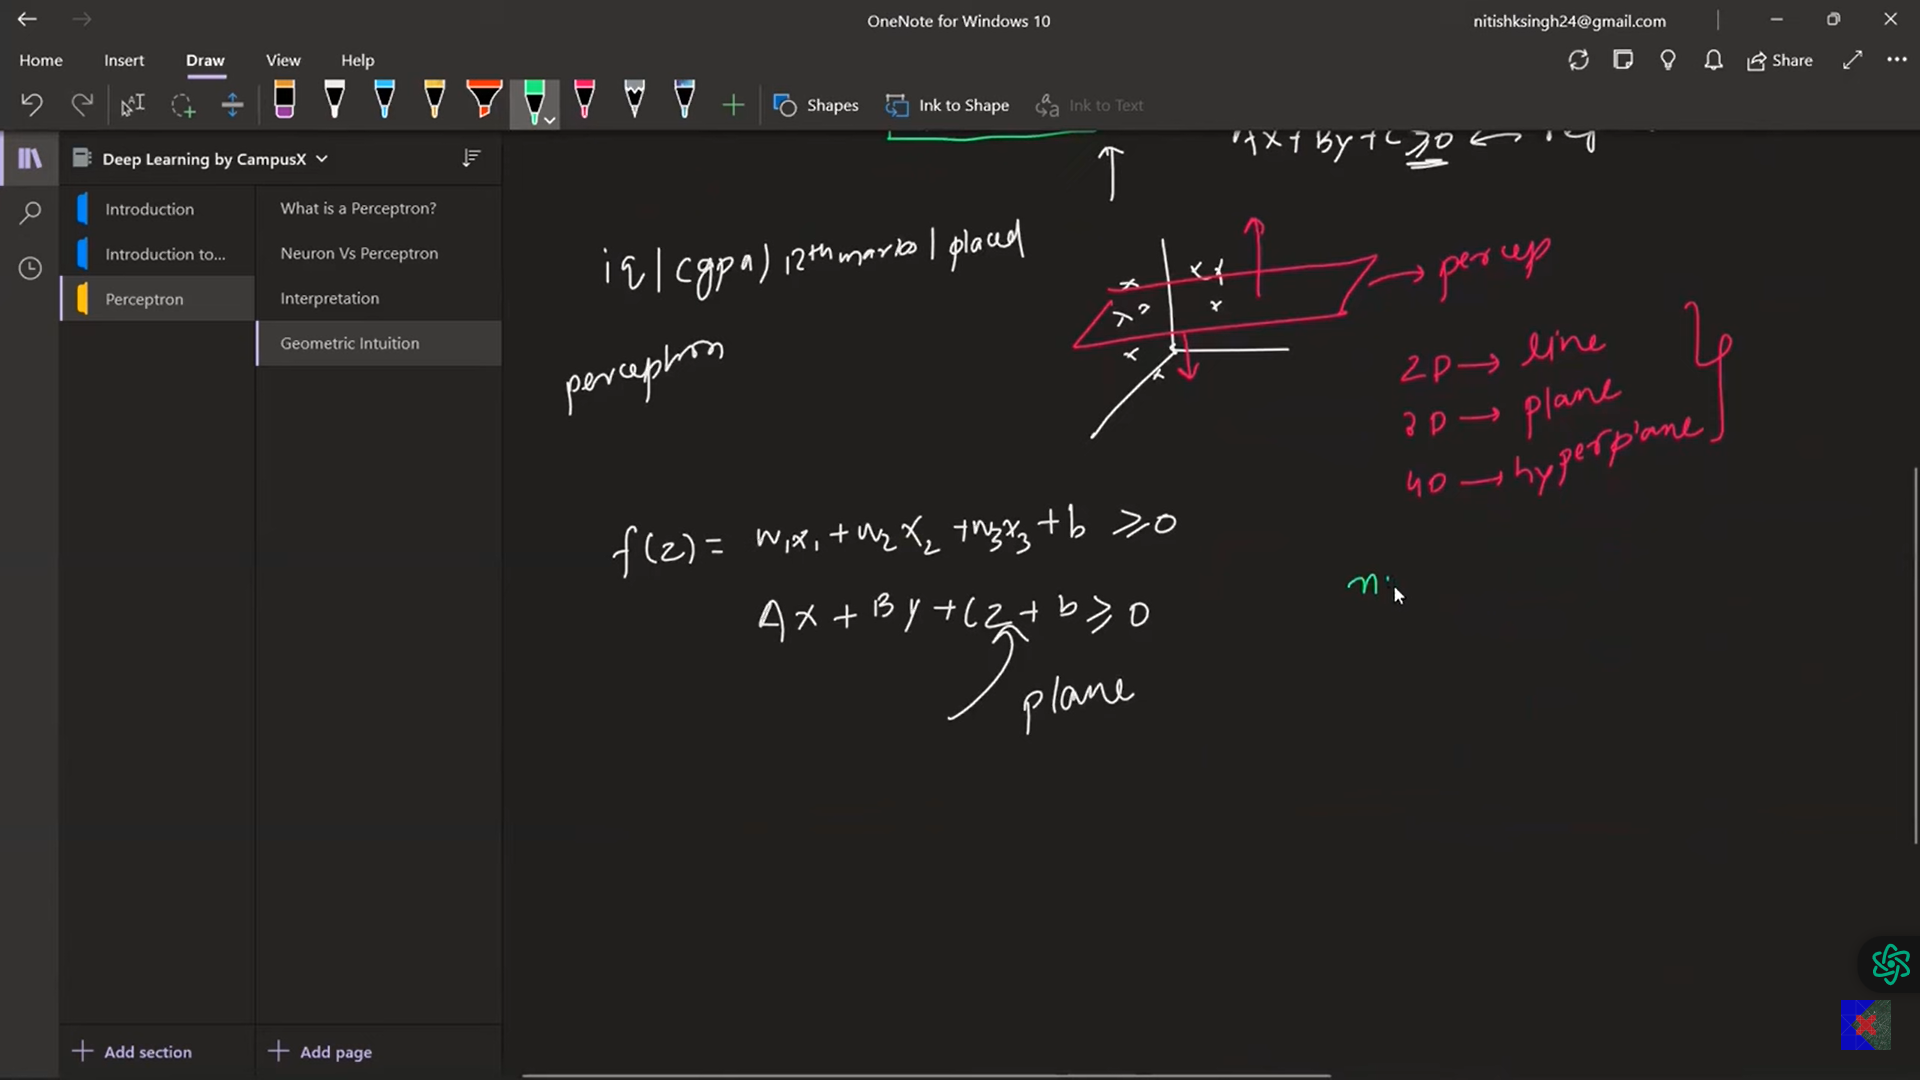 OneNote for Windows 10
nitishksingh24@gmail.com
Home Insert Draw View Help
Share
Shapes
Ink to Shape
Ink to Text
Deep Learning by CampusX
Introduction
Introduction to...
Perceptron
What is a Perceptron?
Neuron Vs Perceptron
Interpretation
Geometric Intuition
Ax + By + C ≥ 0 ←
iq | cgpa | 12th marks | placed
percep
perceptron
2D → line
3D → plane
4D → hyperplane
f(z) = w₁x₁ + w₂x₂ + w₃x₃ + b ≥ 0
Ax + By + Cz + b ≥ 0
plane
Add section
Add page